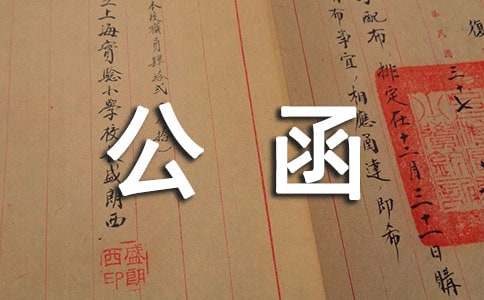 公函
復
三十七
配布 排定在十二月三十一日購
布事宜，相應函達，即希
本校
肆拾弍
立上海實驗小學校
盛朗西
盛朗
西印